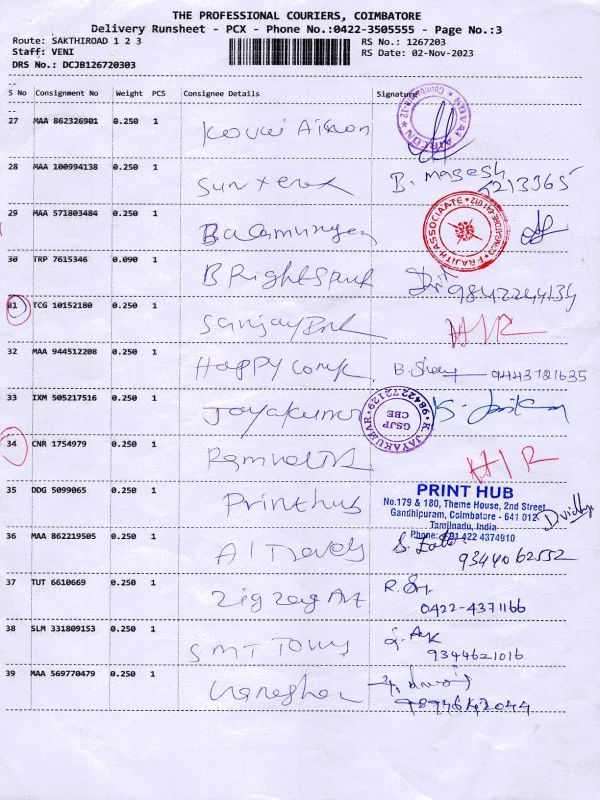 THE PROFESSIONAL COURIERS, COIMBATORE
Delivery Runsheet - PCX - Phone No.:0422-3505555 - Page No.:3
Route: SAKTHIROAD 1 2 3 RS No.: 1267203
Staff: VENI RS Date: 02-Nov-2023
DRS No.: DCJB126720303
S No Consignment No Weight PCS Consignee Details Signature
27 MAA 862326901 0.250 1 Kovai Aircon
28 MAA 100994138 0.250 1 Sun xerox B. Magesh
29 MAA 571803484 0.250 1 Balamurugan
PRAJITH ASSOCIAATE
30 TRP 7615346 0.090 1 Bright Spark 9842244134
31 TCG 10152180 0.250 1 Sanjay
32 MAA 944512208 0.250 1 Happy comp B. 9443781635
33 IXM 505217516 0.250 1 Jayakumar K.
K. JAYAKUMAR 98422 72129
GSJP
CBE
34 CNR 1754979 0.250 1
35 DDG 5099065 0.250 1 Print hub
PRINT HUB
No.179 & 180, Theme House, 2nd Street
Gandhipuram, Coimbatore - 641 012
Tamilnadu, India
Phone: +91 422 4374910
Dvidhya
36 MAA 862219505 0.250 1 A1 Travels S.
9344062552
37 TUT 6610669 0.250 1 Zig zag Art R.
0422-4371166
38 SLM 331809153 0.250 1 SMT Tours
9344621016
39 MAA 569770479 0.250 1